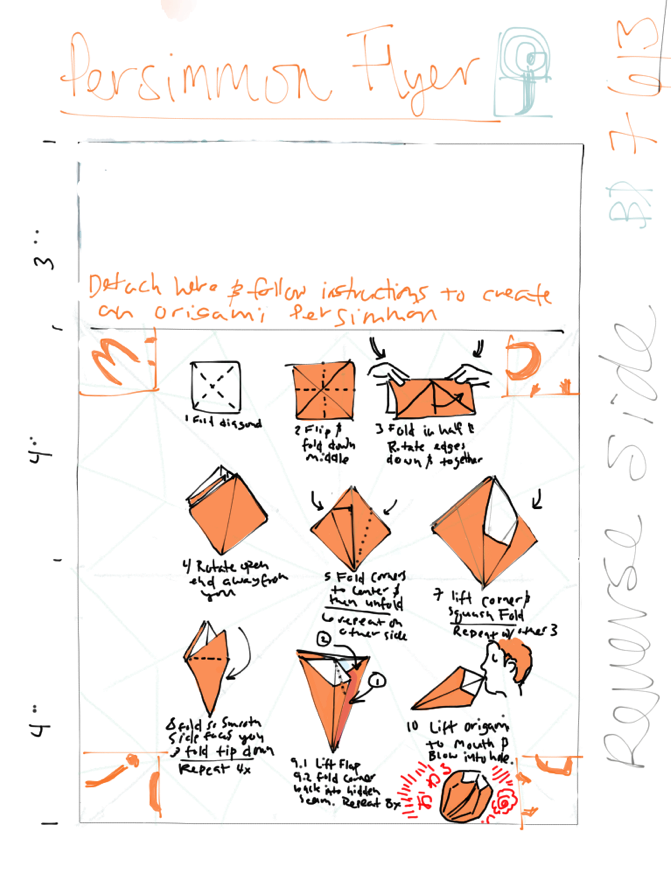 Persimmon Flyer
Detach here & follow instructions to create
an origami Persimmon
1 Fold diagonal
2 Flip &
fold down
middle
3 Fold in half &
Rotate edges
down & together
4 Rotate open
end away from
you
5 Fold corners
to center &
then unfold
↳ repeat on
other side
7 lift corner &
Squash Fold
Repeat w/ other 3
8 fold so smooth
side faces you
& fold tip down
Repeat 4x
2
1
9.1 Lift Flap
9.2 fold corner
back into hidden
seam. Repeat 8x
10 Lift origami
to Mouth &
Blow into hole.
3"
4"
4"
Reverse Side